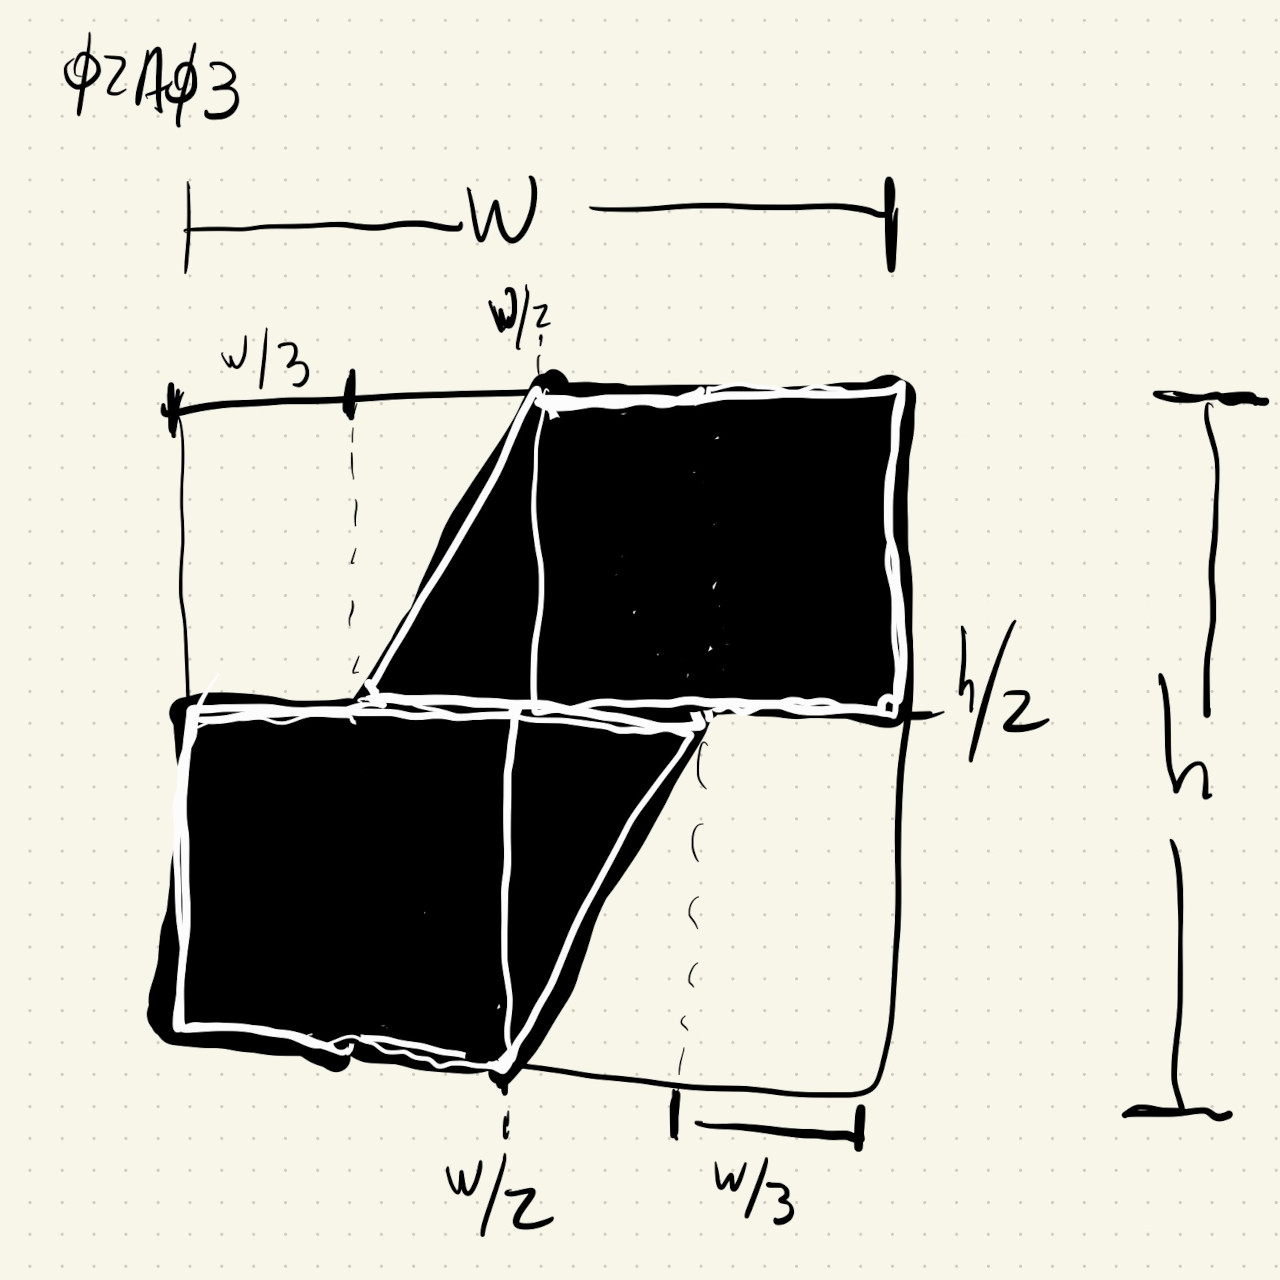 φ2Aφ3
W
W/2
W/3
h/2
h
W/2
W/3